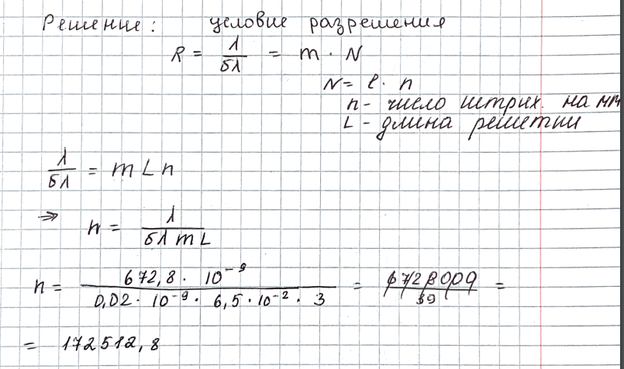 Решение: условие разрешения
R = λ/δλ = m · N
N = l · n
n - число штрих. на мм
L - длина решетки
λ/δλ = m L n
⇒ n = λ/(δλ m L)
n = 672,8 · 10⁻⁹/(0,02 · 10⁻⁹ · 6,5 · 10⁻² · 3) = 6728000/39 =
= 172512,8